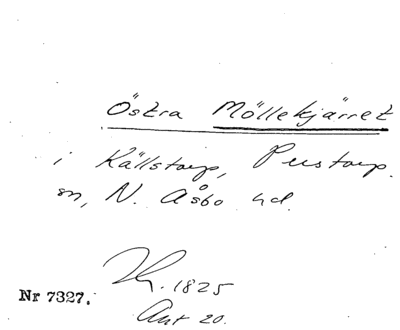 Östra Möllekjärret
i Källstorp, Perstorp
sn, N. Åsbo hd.
1825
Nr 7327.
Akt 20.